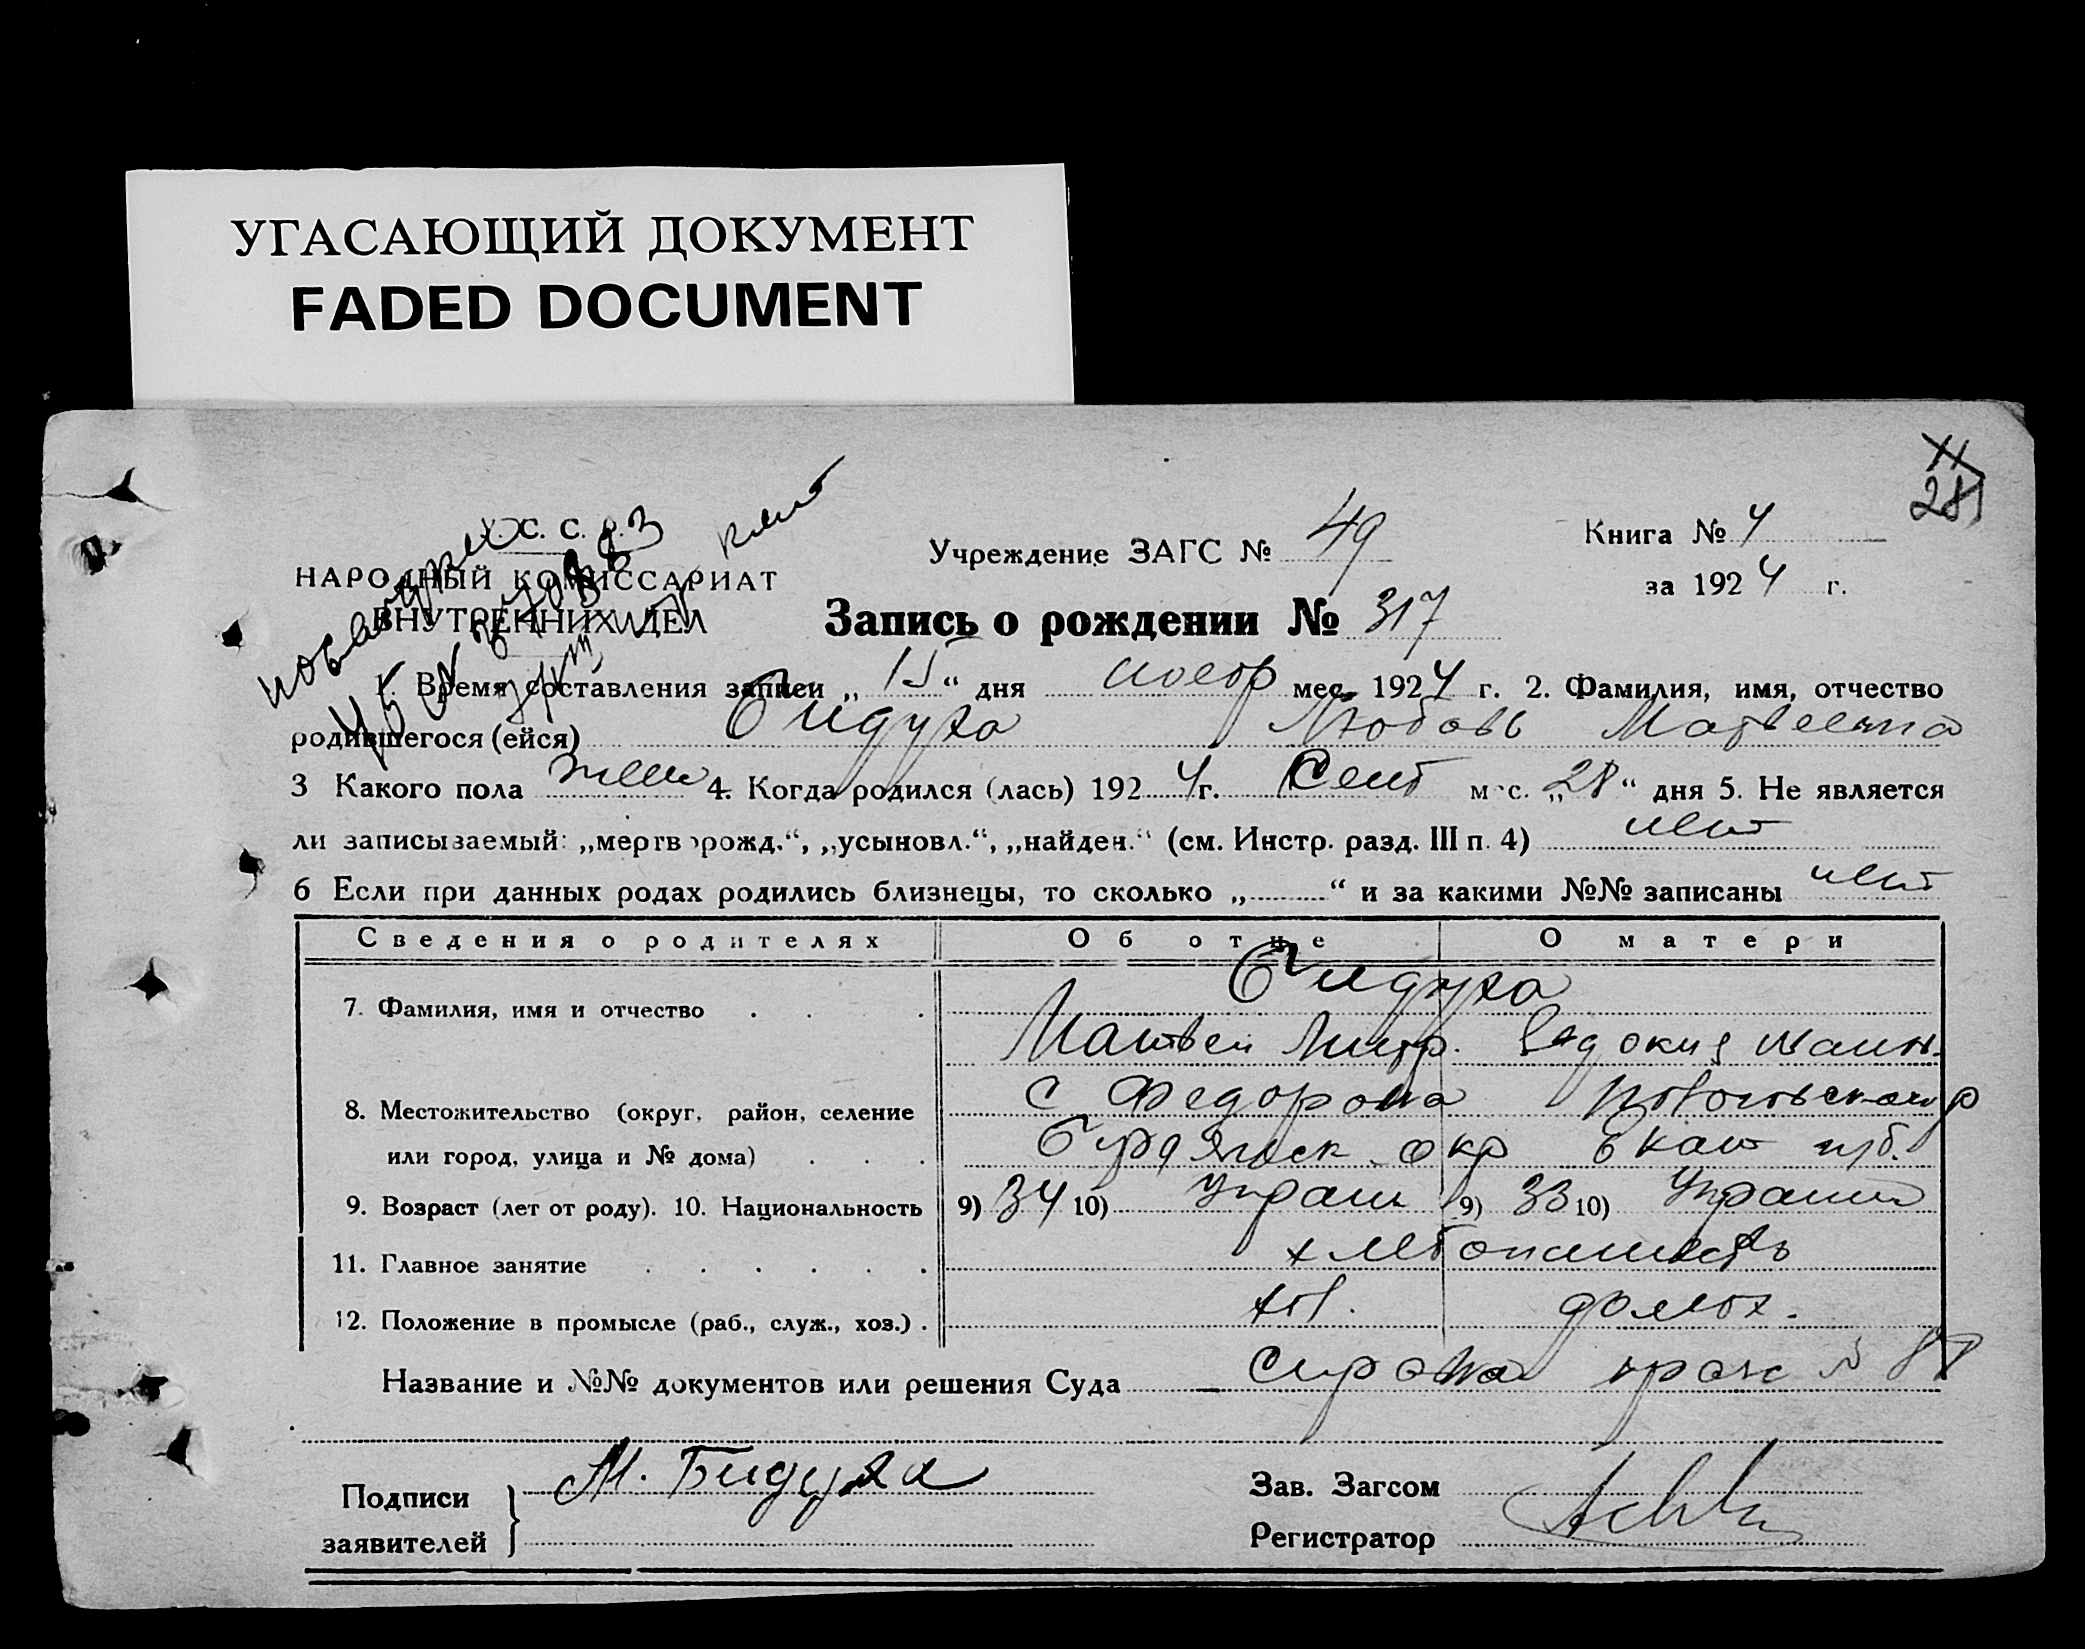 УГАСАЮЩИЙ ДОКУМЕНТ
FADED DOCUMENT
28
С. С.
НАРОДНЫЙ КОМИССАРИАТ
ВНУТРЕННИХ ДЕЛ
нет
Учреждение ЗАГС № 49
Книга № 4
за 1924 г.
Запись о рождении № 317
1. Время составления записи „15“ дня нояб мес. 1924 г. 2. Фамилия, имя, отчество
родившегося (ейся) Бидуха Любовь Матвеевна
3 Какого пола жен 4. Когда родился (лась) 1924 г. Сент мес. „28“ дня 5. Не является
ли записываемый: „мертворожд.“, „усыновл.“, „найден.“ (см. Инстр. разд. III п. 4) нет
6 Если при данных родах родились близнецы, то сколько „ “ и за какими №№ записаны нет
Сведения о родителях Об отце О матери
Бидуха
7. Фамилия, имя и отчество
Матвей Митр. Евдокия Иван.
8. Местожительство (округ, район, селение с Федоровка
или город, улица и № дома) Бердянск окр Екат губ.
9. Возраст (лет от роду). 10. Национальность 9) 34 10) Украин 9) 33 10) Украин
11. Главное занятие хлебопашест
12. Положение в промысле (раб., служ., хоз.) хоз. домох.
Название и №№ документов или решения Суда Справка №
Подписи М. Бидуха Зав. Загсом
заявителей Регистратор